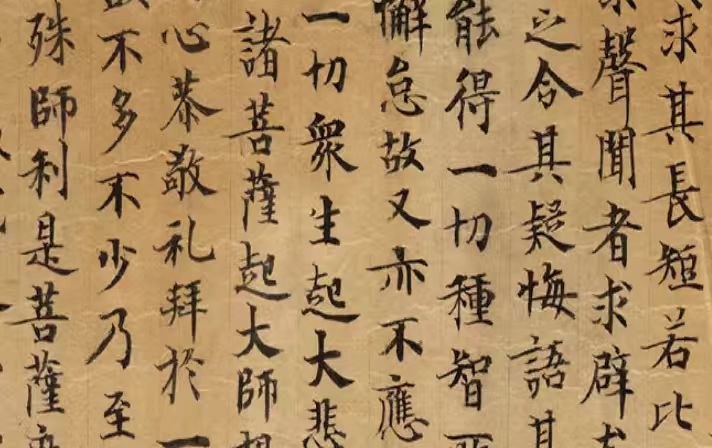 求其長短若比
聲聞者求辟
之令其疑悔語其
能得一切種智
懈怠故又亦不應
一切衆生起大悲
諸菩薩起大師想
心恭敬礼拜於一
不多不少乃至
殊師利是菩薩